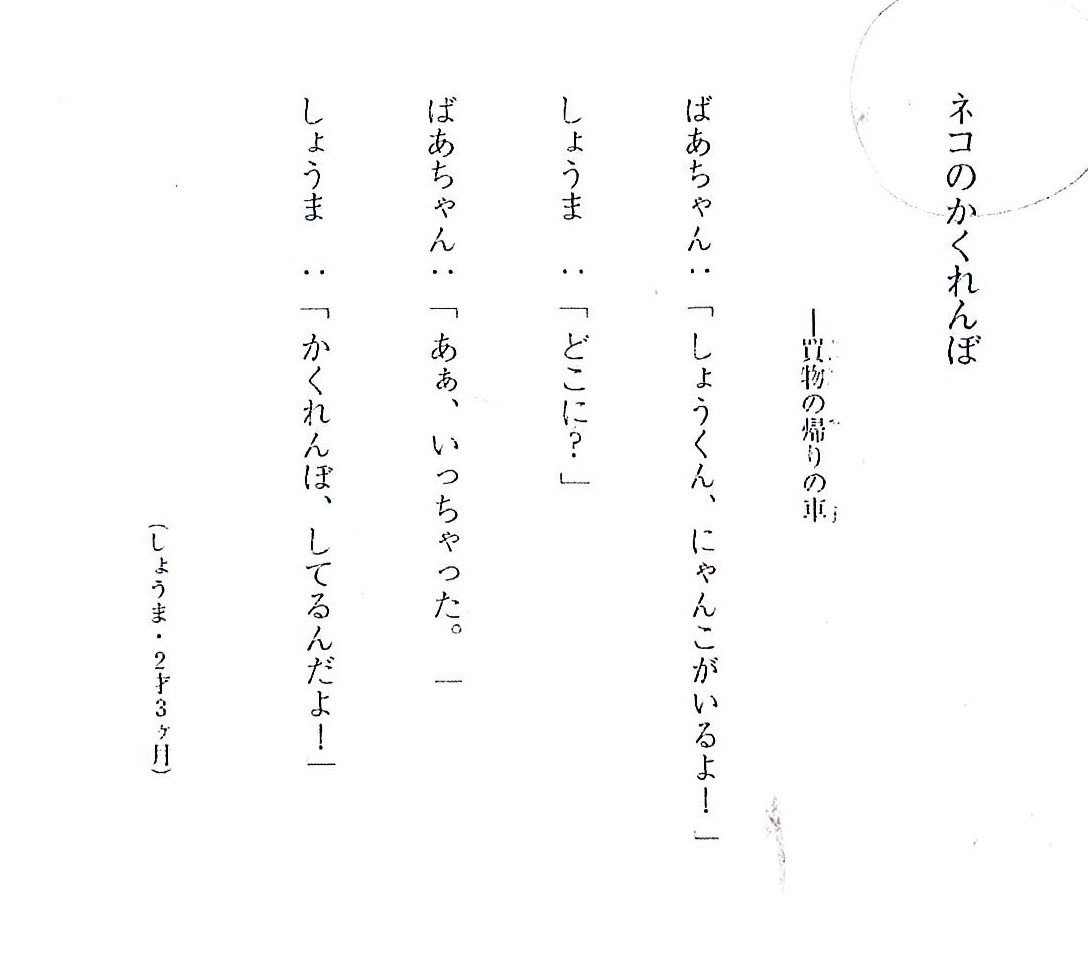 ネコのかくれんぼ
―買物の帰りの車
ばあちゃん：「しょうくん、にゃんこがいるよ！」
しょうま　：「どこに？」
ばあちゃん：「あぁ、いっちゃった。」
しょうま　：「かくれんぼ、してるんだよ！」
（しょうま・2才3ヶ月）